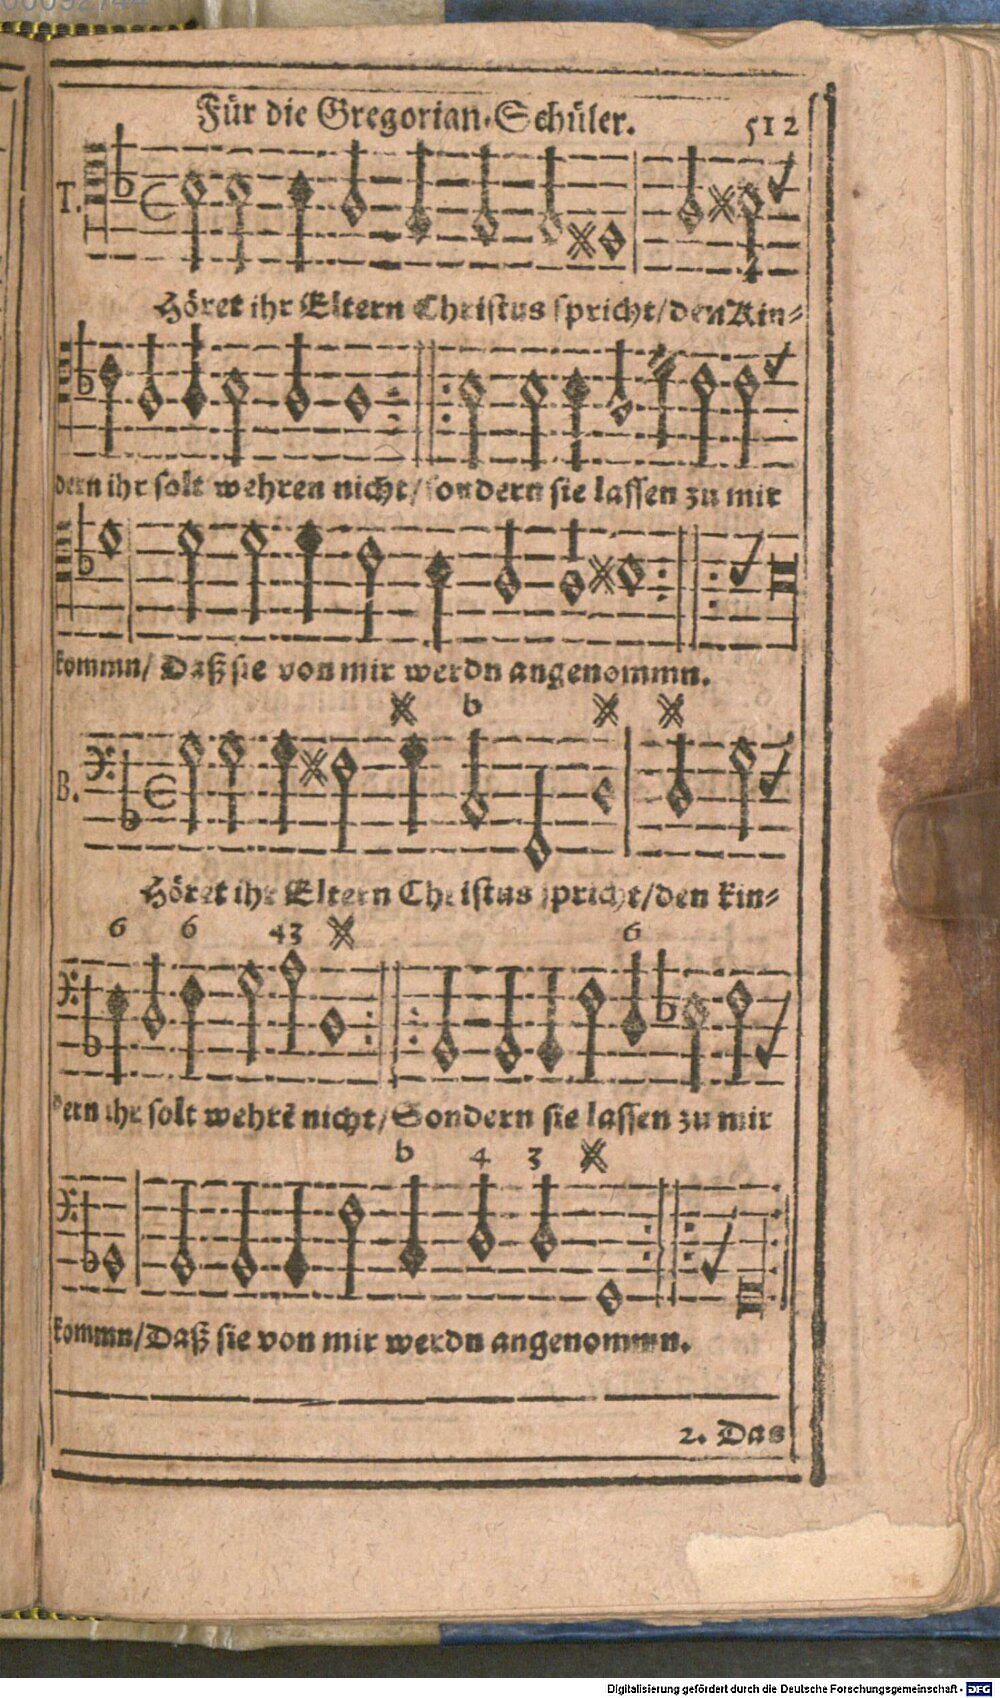 Für die Gregorian-Schüler. 512
T.
Höret ihr Eltern Christus spricht/den Kin-
dern ihr solt wehren nicht/sondern sie lassen zu mir
kommn/ Daß sie von mir werdn angenommn.
b
B.
Höret ihr Eltern Christus spricht/den kin-
6 6 43 6
dern ihr solt wehrē nicht/Sondern sie lassen zu mir
b 4 3
kommn/Daß sie von mir werdn angenommn.
2. Das
Digitalisierung gefördert durch die Deutsche Forschungsgemeinschaft - DFG